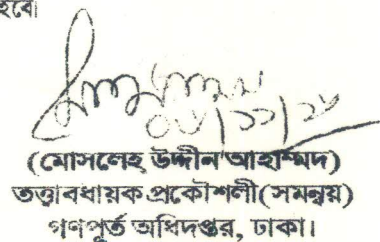 হবে।
(মোসলেহ উদ্দীন আহাম্মদ)
তত্ত্বাবধায়ক প্রকৌশলী(সমন্বয়)
গণপূর্ত অধিদপ্তর, ঢাকা।